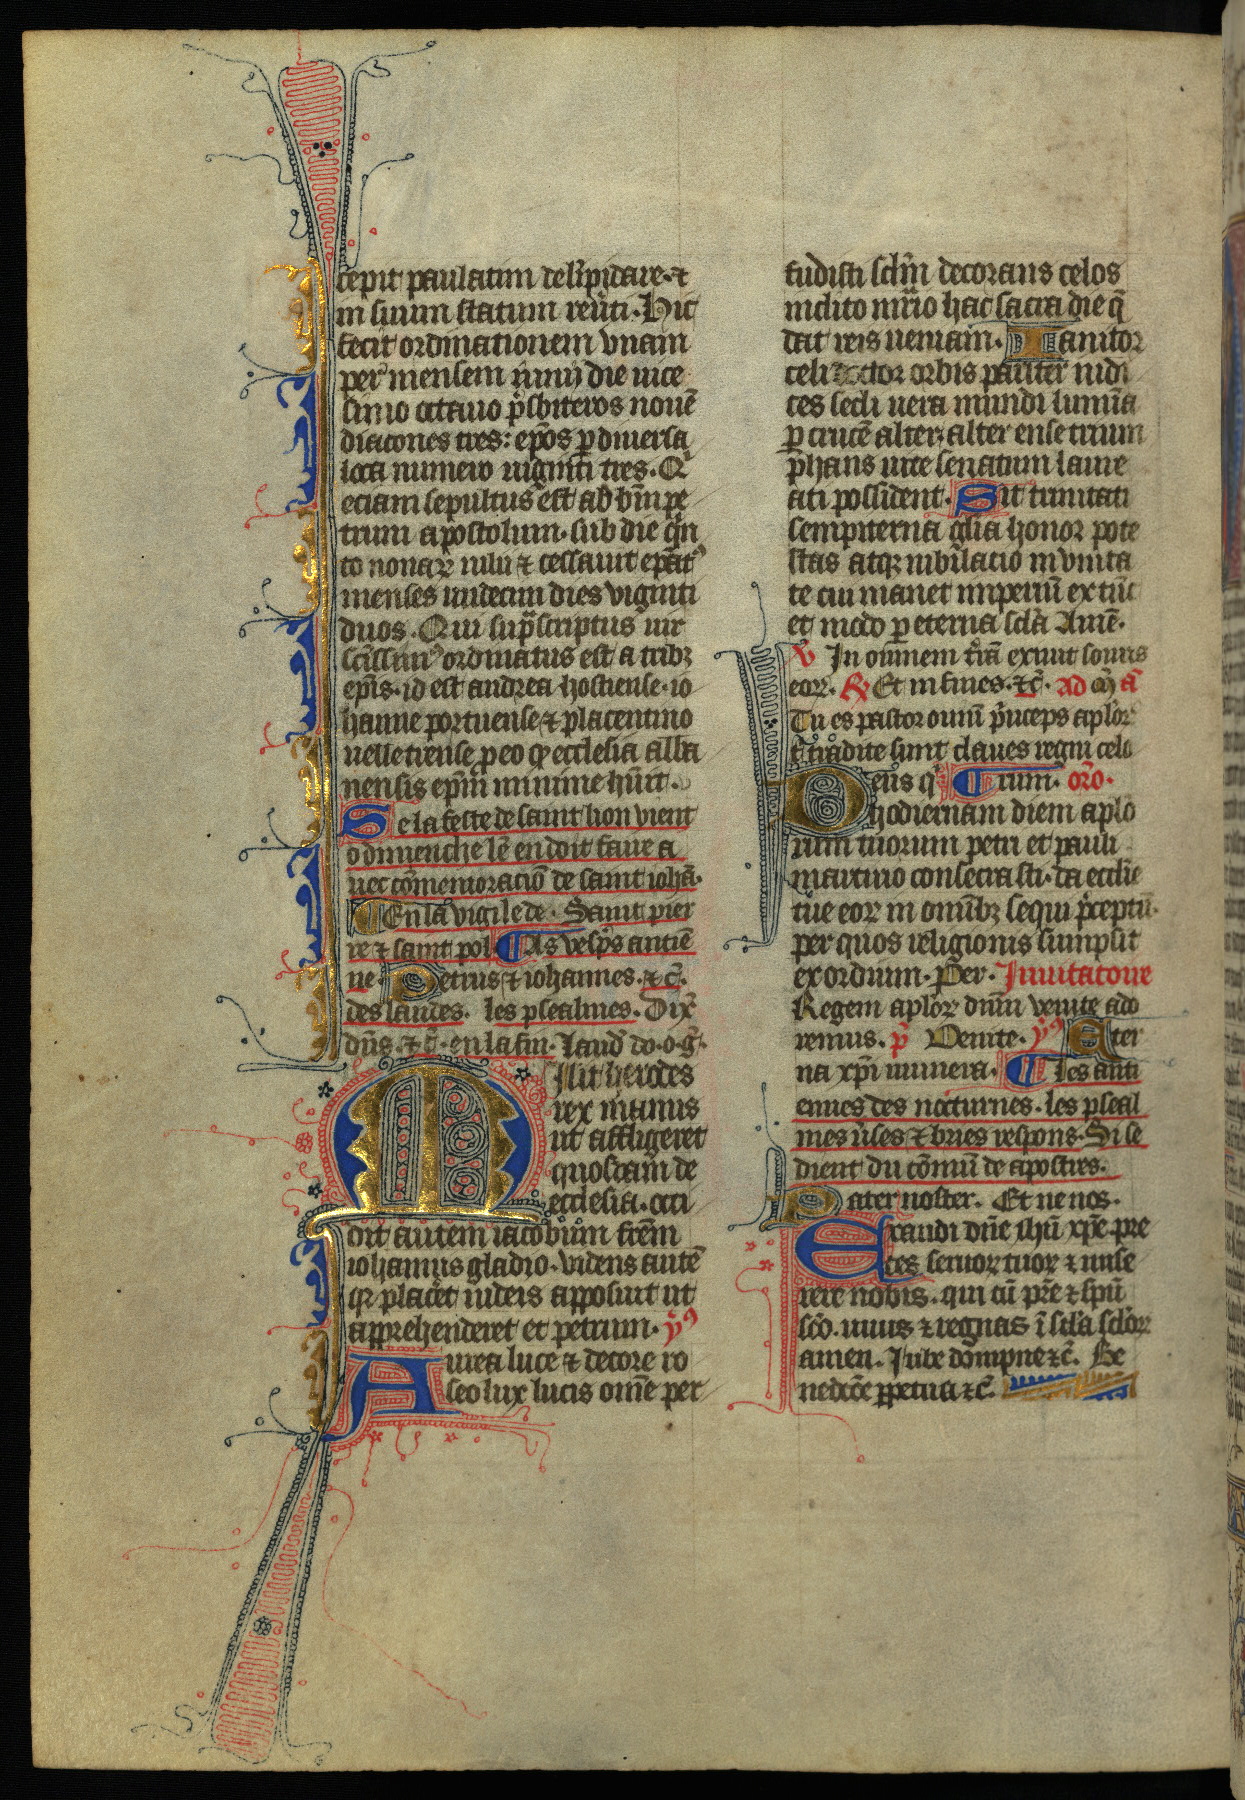 cepit paulatim delŭpidare. ⁊
in suum statum reũti. Hic
fecit ordinationem vnam
per mensem iunij die vice
simo octauo p̃sbiteros nouē
diacones tres: ep̃os ꝑ diuersa
loca numero uiginti tres. Qͥ
eciam sepultus est ad b̃m pe
trum apostolum. sub die q̃n
to nonaꝝ iulii ⁊ cessauit ep̃atꝰ
menses undecim dies viginti
duos. Qui sup̃scriptus uir
sc̃issimꝰ ordinatus est a tribꝫ
ep̃is. id est andrea hostiense. io
hanne portuense ⁊ placentino
uelletrense ꝑ eo ꝙ ecclesia alba
nensis ep̃m minime hũit.
Se la feste de saint lion vient
o dimenche lē en doit faire a
uec cōmemoraciō de saint iohā.
En la vigile de. Saint pier
re ⁊ saint pol As vesp̃s antiē
ne Petrus ⁊ iohannes. ⁊ c̃.
des laudes. les psealmes. Dix̃
dñs. ⁊ c̃. en la fin. Laud do. o. g̃.
Misit herodes
rex manus
ut affligeret
quosdam de
ecclesia. occi
dit autem iacobum frēm
iohannis gladio. videns autē
qꝛ placēt iudeis apposuit ut
apprehenderet et petrum. yꝰ
Aurea luce ⁊ decore ro
seo lux lucis om̄e per
fudisti sclm̃ decorans celos
inclito mr̃io hac sacra die q̃
dat reis ueniam. Ianitor
celi doctor orbis pariter iudi
ces secli uera mundi lumīa
ꝑ crucē alter. alter ense trium
phans uite senatum laure
ati possident. Sit trinitati
sempiterna glia honor pote
stas atqꝫ iubilacio in vnita
te cui manet imperiū ex tūc
et modo ꝑ eterna scl̃a Amē.
v In omnem t̃rā exiuit sonus
eoꝝ. R Et in fines. ⁊c̃. ad m̃ a
Tu es pastor ouiū p̃nceps aploꝝ
t̃ tradite sunt claues regni celo
Deus qͥ rum. or̃o.
hodiernam diem aplo
rum tuorum petri et pauli
martirio consecrasti. da ecclie
tue eoꝝ in omībꝫ sequi p̃ceptū.
per quos religionis sumpsit
exordium. Per. Inuitatoire
Regem aploꝝ dn̄m venite ado
remus. p̃ Venite. yꝰ Eter
na xp̄i munera. Les anti
ennes des nocturnes. les pseal
mes ũses ⁊ bries respons. Si se
dient du cōmū de apostres.
Pater noster. Et ne nos.
Exaudi dn̄e ihū xp̄e pre
ces seruoꝝ tuoꝝ ⁊ mise
rere nobis. qui cū pr̃e ⁊ sp̄u
sc̃o. uiuis ⁊ regnas ī scl̃a scl̃oꝝ
amen. Iube dompne ⁊c̃. Be
nedc̃ōe ꝑpetua ⁊c̃